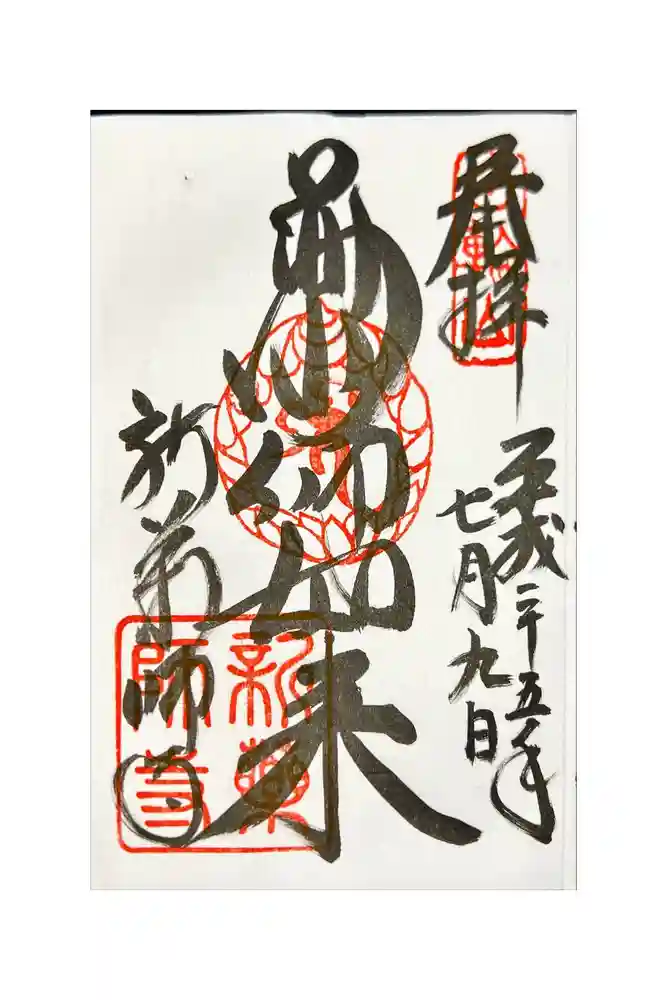 奉拝
平成二十五年
七月九日
薬師如来
新薬師寺
新薬師寺